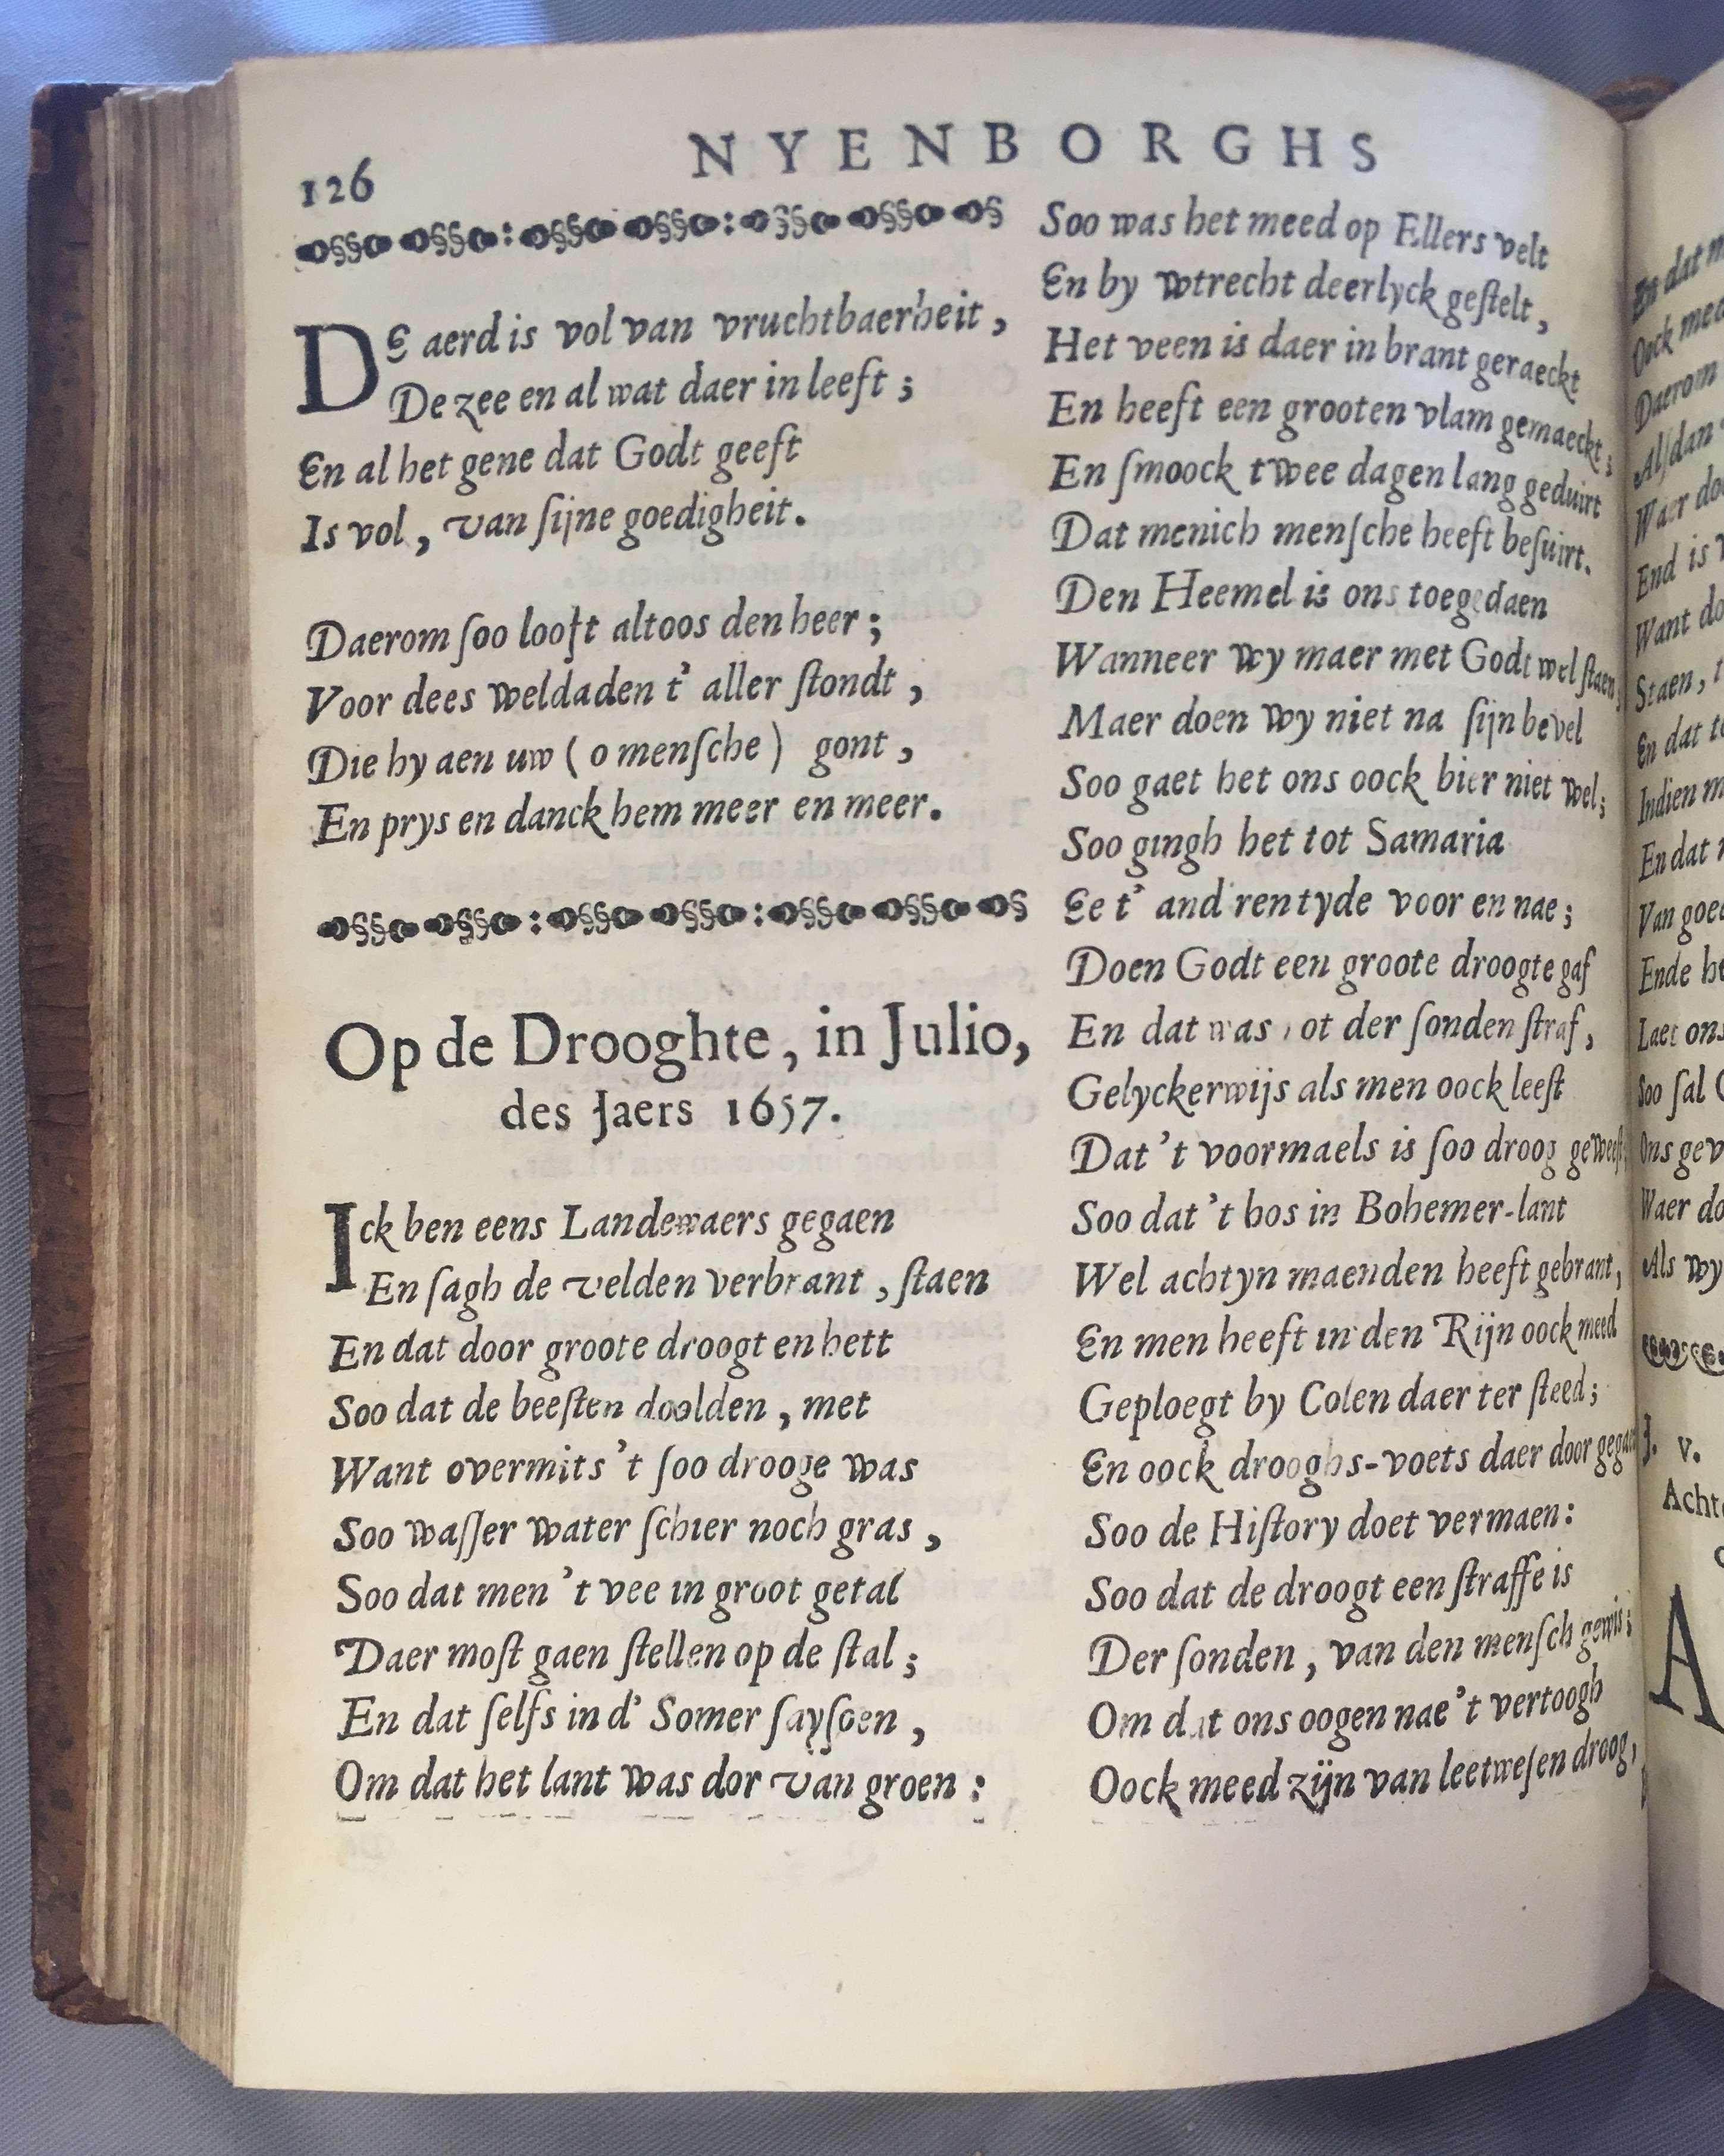 126
NYENBORGHS
DE aerd is vol van vruchtbaerheit,
De zee en al wat daer in leeft;
En al het gene dat Godt geeft
Is vol, van ſijne goedigheit.
Daerom ſoo looft altoos den heer;
Voor dees weldaden t' aller ſtondt,
Die hy aen uw (o menſche) gont,
En prys en danck hem meer en meer.
Op de Drooghte, in Julio,
des Jaers 1657.
Ick ben eens Landewaers gegaen
En ſagh de velden verbrant, ſtaen
En dat door groote droogt en hett
Soo dat de beeſten doolden, met
Want overmits 't ſoo drooge was
Soo waſſer water ſchier noch gras,
Soo dat men 't vee in groot getal
Daer moſt gaen ſtellen op de ſtal;
En dat ſelfs in d' Somer ſayſoen,
Om dat het lant was dor van groen:
Soo was het meed op Ellers velt
En by wtrecht deerlyck geſtelt,
Het veen is daer in brant geraeckt
En heeft een grooten vlam gemaeckt;
En ſmoock twee dagen lang geduirt
Dat menich menſche heeft beſuirt.
Den Heemel is ons toegedaen
Wanneer wy maer met Godt wel ſtaen;
Maer doen wy niet na ſijn bevel
Soo gaet het ons oock hier niet wel;
Soo gingh het tot Samaria
Ee t' and'ren tyde voor en nae;
Doen Godt een groote droogte gaf
En dat was tot der ſonden ſtraf,
Gelyckerwijs als men oock leeſt
Dat 't voormaels is ſoo droog geweeſt;
Soo dat 't bos in Bohemer-lant
Wel achtyn maenden heeft gebrant,
En men heeft in den Rijn oock meed
Geploegt by Colen daer ter ſteed;
En oock drooghs-voets daer door gegaen
Soo de Hiſtory doet vermaen:
Soo dat de droogt een ſtraffe is
Der ſonden, van den menſch gewis;
Om dat ons oogen nae 't vertoogh
Oock meed zijn van leetweſen droog,
En dat
Oock
Daerom
Alſdan
Waer
End is
Want
Staen,
En dat
Indien
En dat
Van
Ende
Laet ons
Soo ſal
Ons
Waer
Als wy
J. v.
A